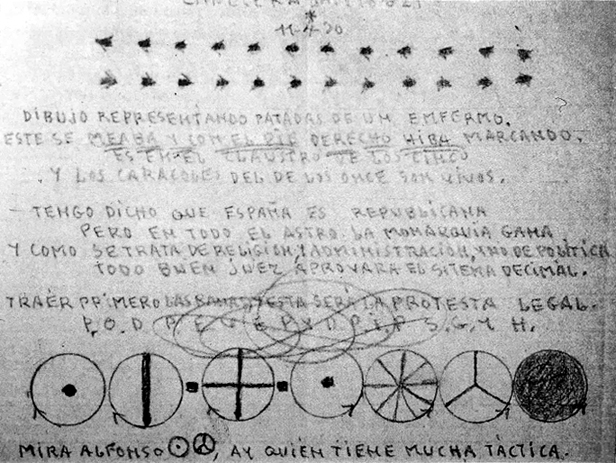 11-4-20
DIBUJO REPRESENTANDO PATADAS DE UN EMFERMO.
ESTE SE MEABA Y CON EL PIE DERECHO HIBA MARCANDO.
ES EN EL CLAUSTRO DE LOS CINCO
Y LOS CARACOLES DEL DE LOS ONCE SON VIVOS.
- TENGO DICHO QUE ESPAÑA ES REPUBLICANA
PERO EN TODO EL ASTRO LA MONARQUIA GANA
Y COMO SE TRATA DE RELIGION, Y ADMINISTRACIÓN, Y NO DE POLÍTICA
TODO BUEN JUEZ APROVARA EL SITEMA DECIMAL.
TRAÉR PRIMERO LAS Y ESTA SERÁ LA PROTESTA LEGAL.
P.O.D. S.G.Y H.
MIRA ALFONSO, AY QUIÉN TIENE MUCHA TÁCTICA.